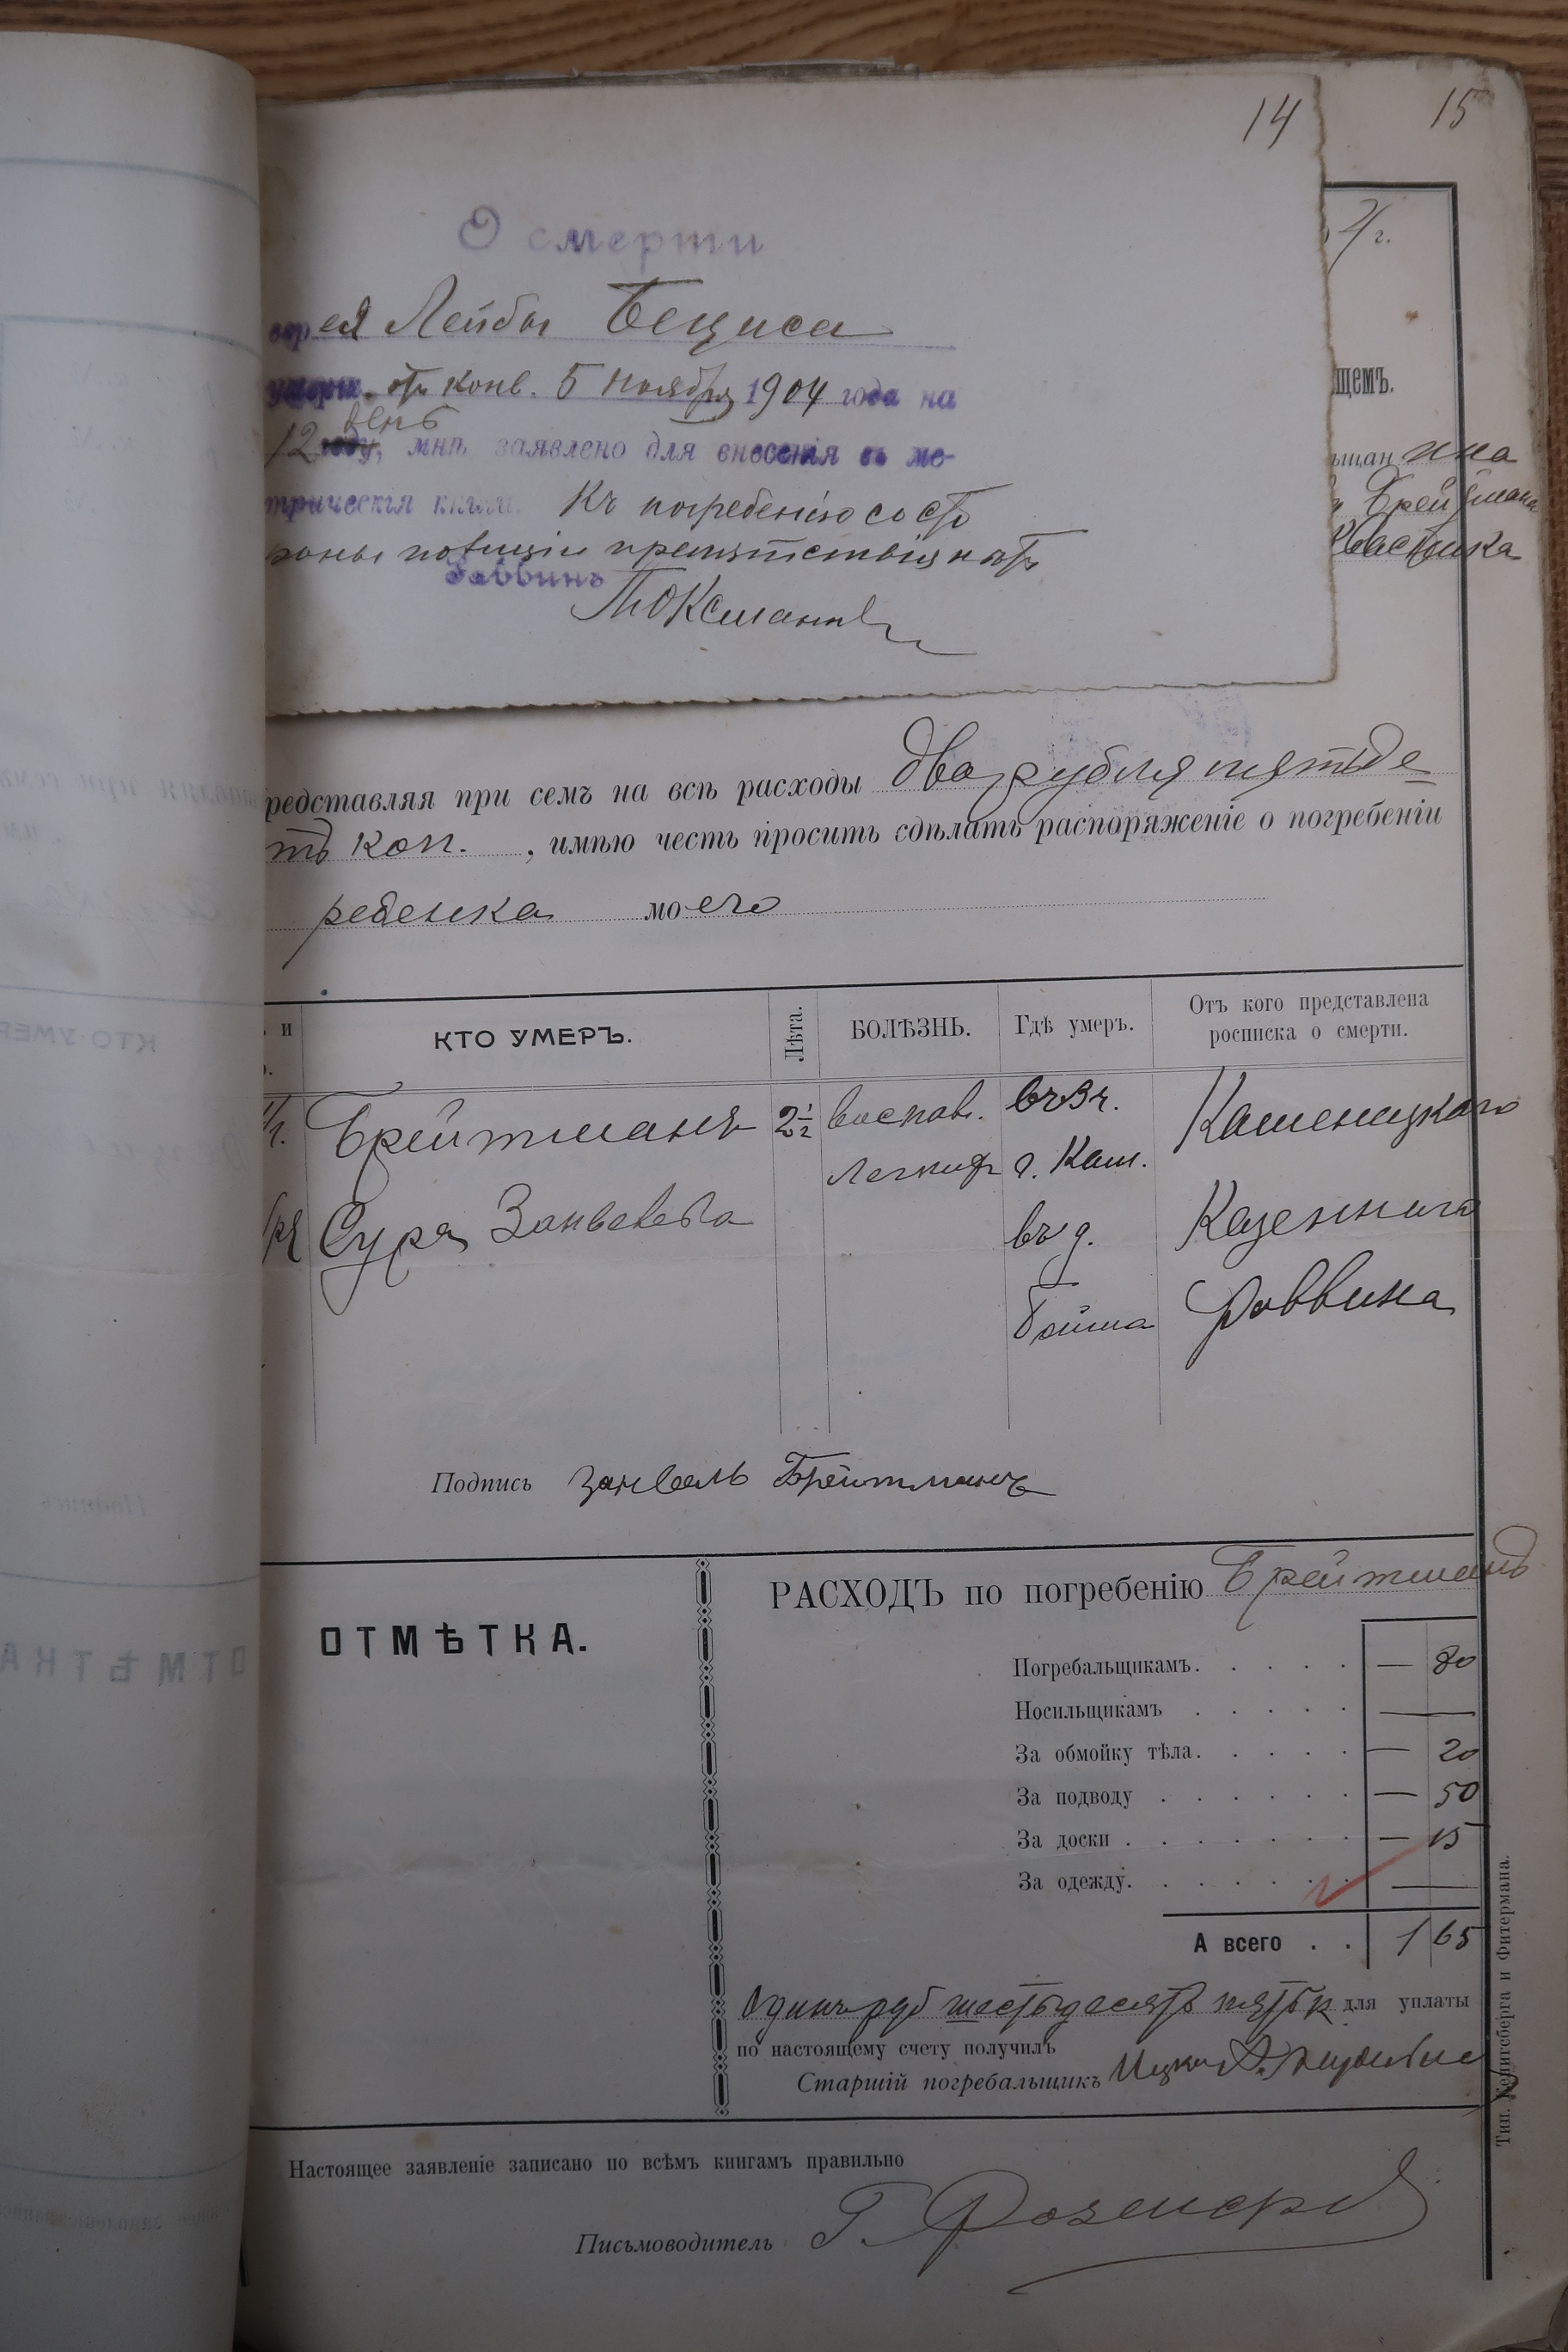 14
15
О смерти
еврея Лейбы Бециса
умерш. отъ конв. 5 ноября 1904 года на
12 день году, мнѣ заявлено для внесенія въ ме-
трическія книги. Къ погребенію со сто
роны полиціи препятствія нѣтъ
Раввинъ
4 г.
щемъ.
ьщан ина
Брейтмана
редставляя при семъ на всѣ расходы два рубля пятьде
тъ коп. , имѣю честь просить сдѣлать распоряженіе о погребеніи
ребенка моего
и КТО УМЕРЪ. Лѣта. БОЛѢЗНЬ. Гдѣ умеръ. Отъ кого представлена
росписка о смерти.
Брейтманъ 2½ воспал. въ 3 ч. Каменецкаго
легкихъ г. Кам.
Сура Занвелева въ д. Казеннаго
Раввина
Подпись Занвель Брейтманъ
ОТМѢТКА.
РАСХОДЪ по погребенію Брейтманъ
Погребальщикамъ. — 80
Носильщикамъ —
За обмойку тѣла. — 20
За подводу — 50
За доски — 15
За одежду. —
А всего . . 1 65
Одинъ руб шестьдесятъ пять к для уплаты
по настоящему счету получилъ
Старшій погребальщикъ Ицко
Настоящее заявленіе записано по всѣмъ книгамъ правильно
Письмоводитель Г.
Тип. Кенигсберга и Фитермана.
КТО УМЕР
ОТМѢТКА